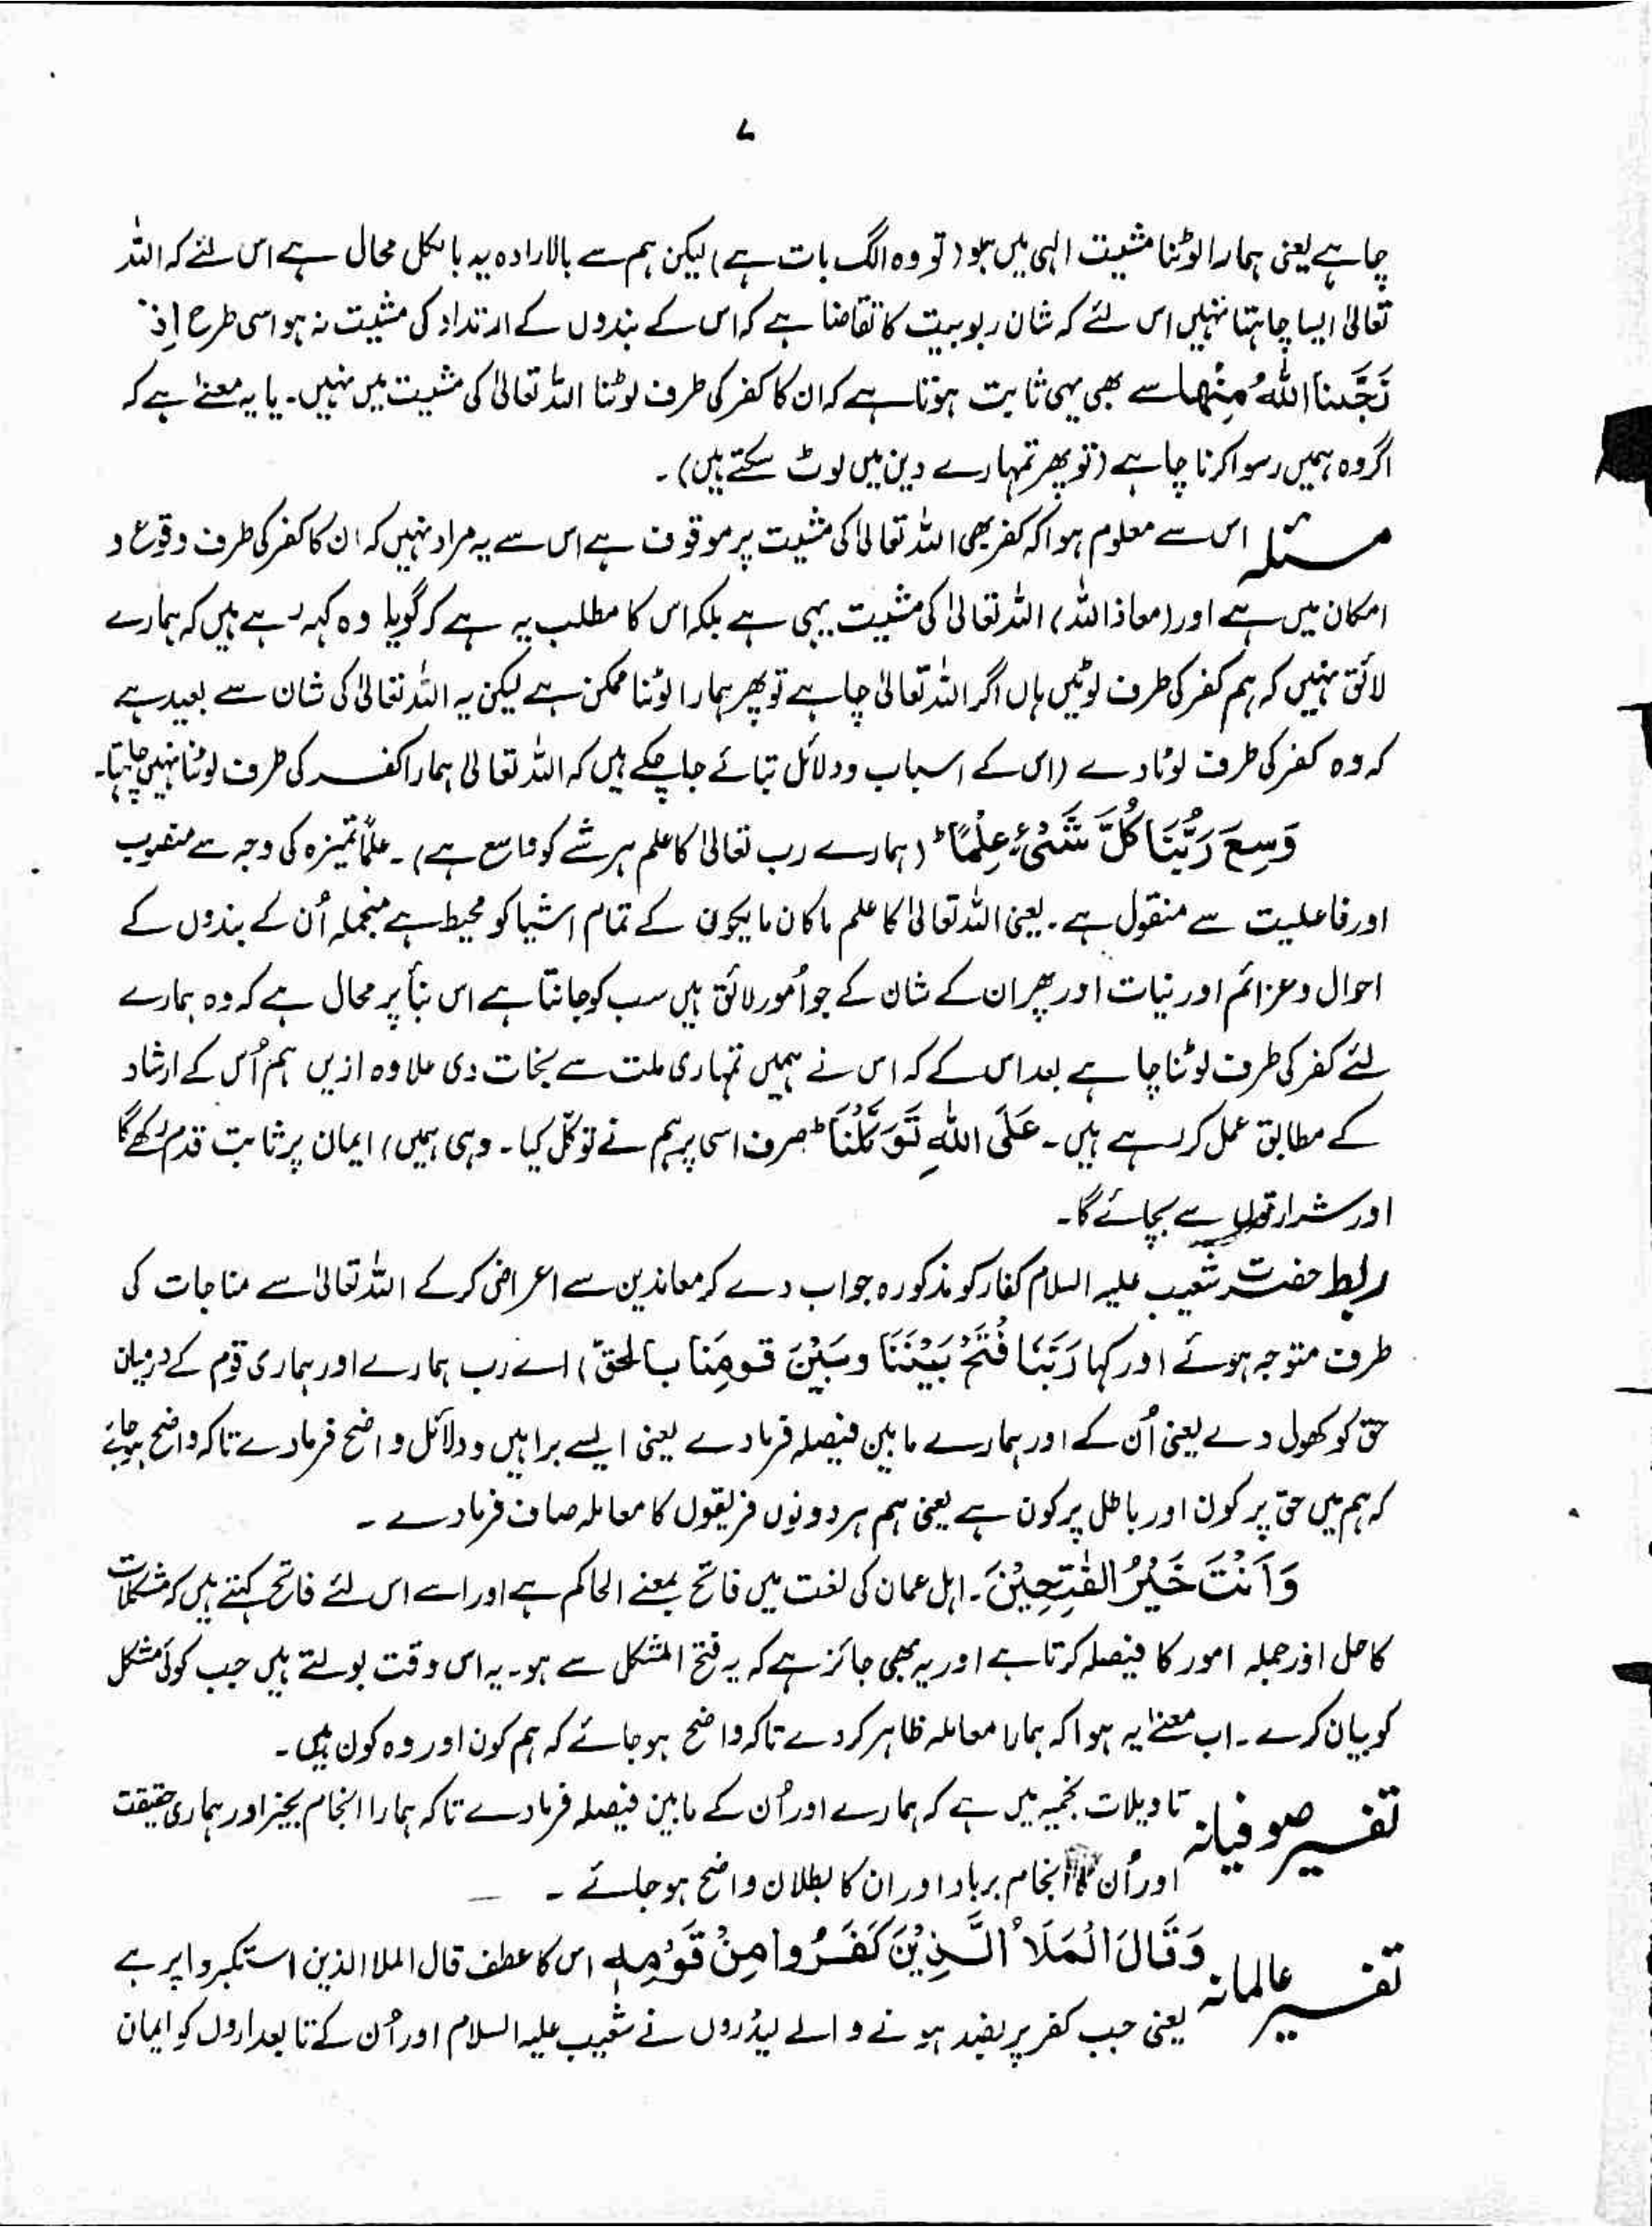 ۷
چاہے یعنی ہمارا لوٹنا مشیت الہی میں ہو (تو وہ الگ بات ہے) لیکن ہم سے بالارادہ یہ بالکل محال ہے اس لئے کہ اللہ
تعالیٰ ایسا چاہتا نہیں اس لئے کہ شان ربوبیت کا تقاضا ہے کہ اس کے بندوں کے ارتداد کی مشیت نہ ہو اسی طرح اِذْ
نَجَّىنَا اللّٰهُ مِنْهَا سے بھی یہی ثابت ہوتا ہے کہ ان کا کفر کی طرف لوٹنا اللہ تعالیٰ کی مشیت میں نہیں۔ یا یہ معنےٰ ہے کہ
اگر وہ ہمیں رسوا کرنا چاہے (تو پھر تمہارے دین میں لوٹ سکتے ہیں)۔
مسئلہ اس سے معلوم ہوا کہ کفر بھی اللہ تعالیٰ کی مشیت پر موقوف ہے اس سے یہ مراد نہیں کہ ان کا کفر کی طرف وقوع و
امکان میں ہے اور (معاذ اللہ) اللہ تعالیٰ کی مشیت یہی ہے بلکہ اس کا مطلب یہ ہے کہ گویا وہ کہہ رہے ہیں کہ ہمارے
لائق نہیں کہ ہم کفر کی طرف لوٹیں ہاں اگر اللہ تعالیٰ چاہے تو پھر ہمارا لوٹنا ممکن ہے لیکن یہ اللہ تعالیٰ کی شان سے بعید ہے
کہ وہ کفر کی طرف لوٹا دے (اس کے اسباب و دلائل بتائے جا چکے ہیں کہ اللہ تعالیٰ ہمارا کفر کی طرف لوٹنا نہیں چاہتا۔
وَسِعَ رَبُّنَا كُلَّ شَىْءٍ عِلْمًا ؕ (ہمارے رب تعالیٰ کا علم ہر شے کو واسع ہے)۔ علمًا تمیزہ کی وجہ سے منصوب
اور فاعلیت سے منقول ہے۔ یعنی اللہ تعالیٰ کا علم ماکان مایکون کے تمام اشیا کو محیط ہے منجملہ اُن کے بندوں کے
احوال و عزائم اور نیات اور پھر ان کے شان کے جو اُمور لائق ہیں سب کو جانتا ہے اس بنأ پر محال ہے کہ وہ ہمارے
لئے کفر کی طرف لوٹنا چاہے بعد اس کے کہ اس نے ہمیں تمہاری ملت سے نجات دی علاوہ ازیں ہم اُس کے ارشاد
کے مطابق عمل کر رہے ہیں۔ عَلَى اللّٰهِ تَوَكَّلْنَا ؕ صرف اسی پر ہم نے توکّل کیا۔ وہی ہمیں) ایمان پر ثابت قدم رکھے گا
اور شرارتوں سے بچائے گا۔
ربط حضرت شعیب علیہ السلام کفار کو مذکورہ جواب دے کر معاندین سے اعراض کر کے اللہ تعالیٰ سے مناجات کی
طرف متوجہ ہوئے اور کہا رَبَّنَا فْتَحْ بَيْنَنَا وبَيْنَ قومِنَا بالحقّ) اے رب ہمارے اور ہماری قوم کے درمیان
حق کو کھول دے یعنی اُن کے اور ہمارے مابین فیصلہ فرما دے یعنی ایسے براہیں و دلائل واضح فرما دے تاکہ واضح ہو جائے
کہ ہم میں حق پر کون اور باطل پر کون ہے یعنی ہم ہر دونوں فریقوں کا معاملہ صاف فرما دے ۔
وَاَنْتَ خَيْرُ الفٰتِحِيْنَ ۔ اہل عمان کی لغت میں فاتح بمعنے الحاکم ہے اور اسے اس لئے فاتح کہتے ہیں کہ مشکلات
کا حل اور جملہ امور کا فیصلہ کرتا ہے اور یہ بھی جائز ہے کہ یہ فتح المشکل سے ہو۔ یہ اس وقت بولتے ہیں جب کوئی مشکل
کو بیان کرے ۔ اب معنےٰ یہ ہوا کہ ہمارا معاملہ ظاہر کر دے تاکہ واضح ہو جائے کہ ہم کون اور وہ کون ہیں۔
تفسیر صوفیانہ تاویلات نجمیہ میں ہے کہ ہمارے اور اُن کے مابین فیصلہ فرما دے تاکہ ہمارا انجام بخیر اور ہماری حقیقت
اور اُن کا انجام برباد اور ان کا بطلان واضح ہو جائے ۔
تفسیر عالمانہ وَقَالَ الْمَلَاُ الَّذِيْنَ كَفَرُوا مِنْ قَوْمِهٖ اس کا عطف قال الملا الذین استکبروا پر ہے
یعنی جب کفر پر بضد ہونے والے لیڈروں نے شعیب علیہ السلام اور اُن کے تابعداروں کو ایمان